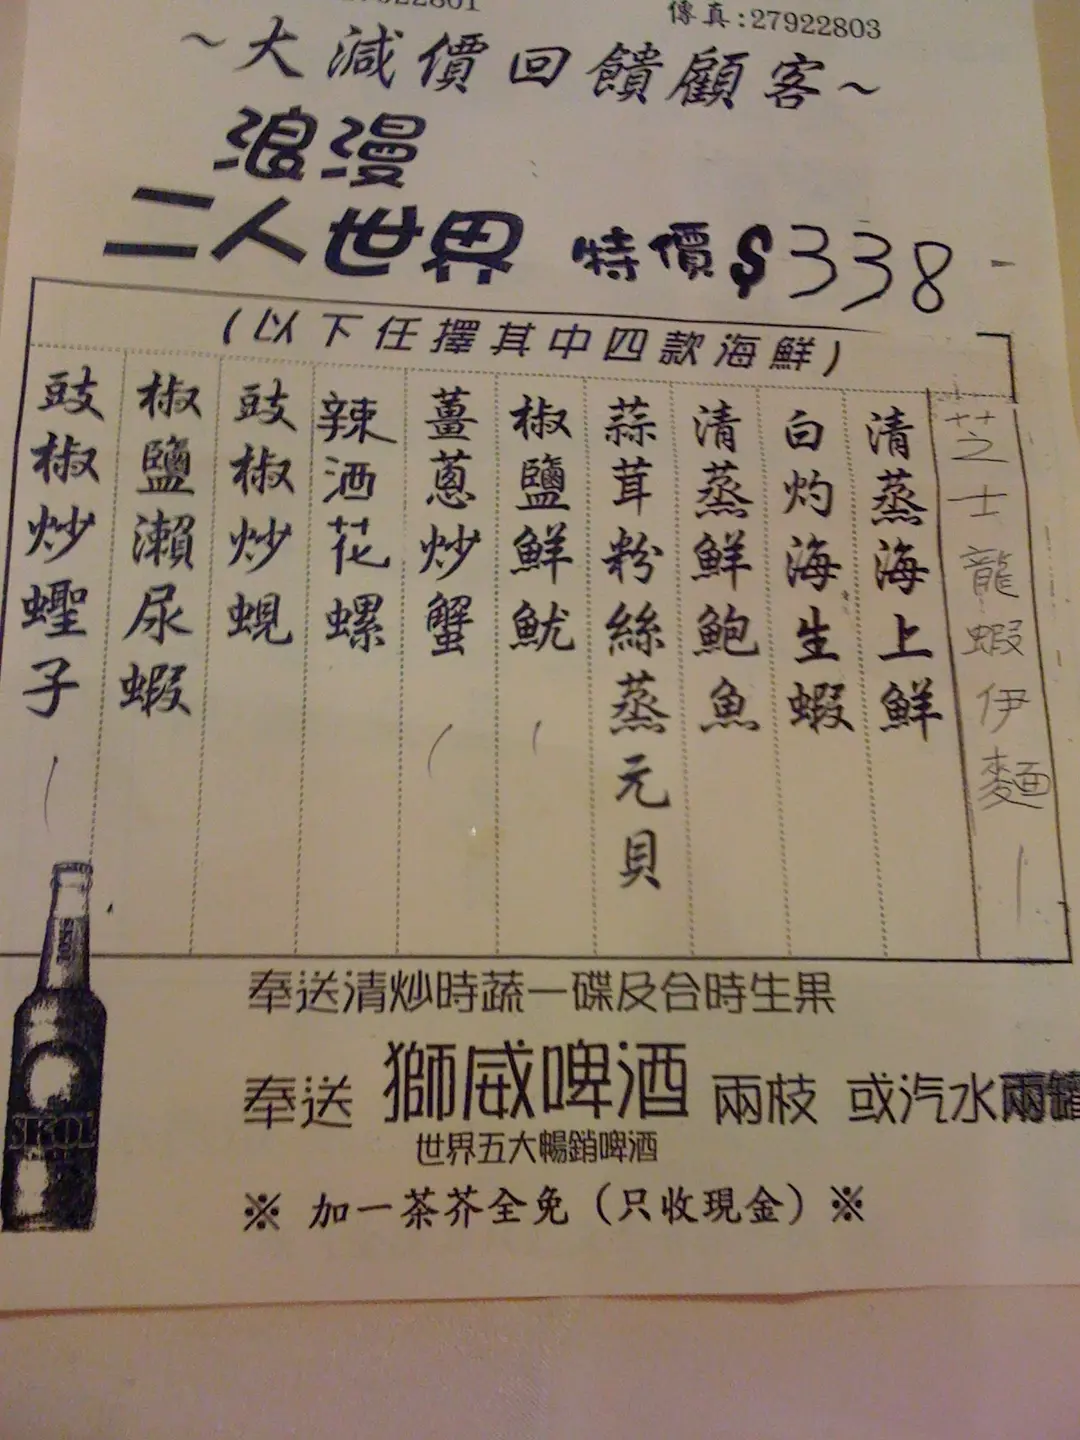 傳真:27922803
~大減價回饋顧客~
浪漫
二人世界 特價$338
(以下任擇其中四款海鮮)
芝士龍蝦伊麵
清蒸海上鮮
白灼海生蝦
清蒸鮮鮑魚
蒜茸粉絲蒸元貝
椒鹽鮮魷
薑蔥炒蟹
辣酒花螺
豉椒炒蜆
椒鹽瀨尿蝦
豉椒炒蟶子
奉送清炒時蔬一碟及合時生果
奉送 獅威啤酒 兩枝 或汽水兩罐
世界五大暢銷啤酒
※ 加一茶芥全免 (只收現金) ※
SKOL